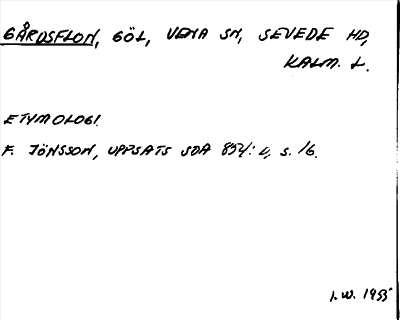 GÅRDSFLON, GÖL, VENA SN, SEVEDE HD,
KALM. L.
ETYMOLOGI.
F. JÖNSSON, UPPSATS SOA 854: s. 16.
I. W. 1955